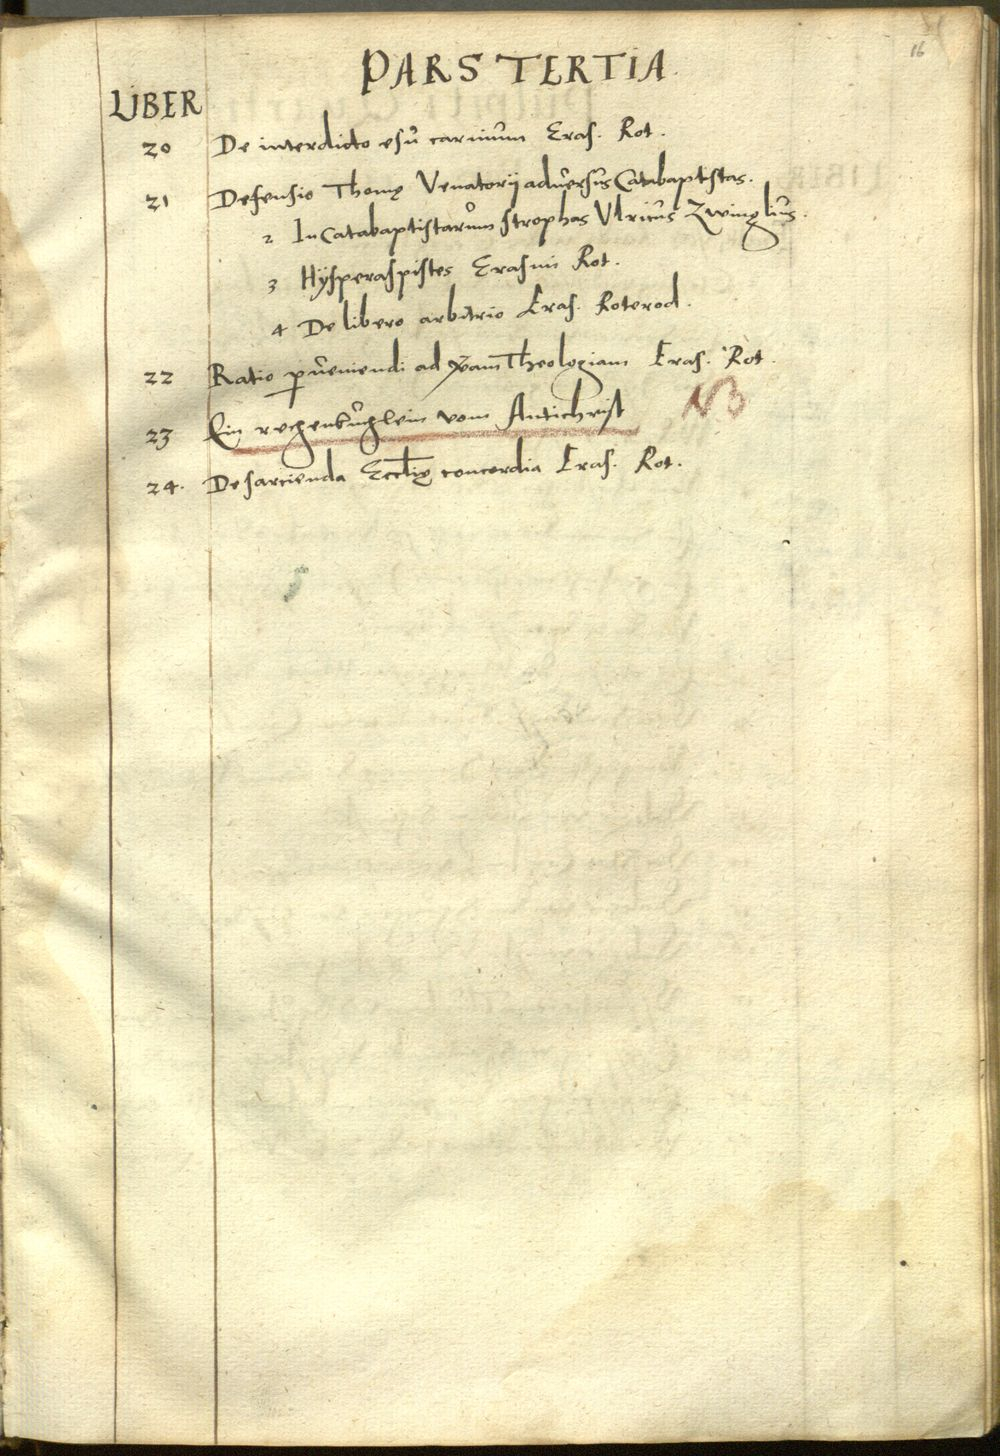 16
PARS TERTIA.
LIBER
20 De interdicto esu carnium Eras. Rot.
21 Defensio Thomę Venatorij adversus Catabaptistas.
2 In Catabaptistarum strophas Vlricus Zwinglius.
3 Hysperaspistes Erasmi Rot.
4 De libero arbitrio Eras. Roterod.
22 Ratio pueniendi ad xam Theologiam Eras. Rot.
23 Ein rechenbuchlein vom Antichrist NB
24. De sarcienda Eccltię concordia Eras. Rot.